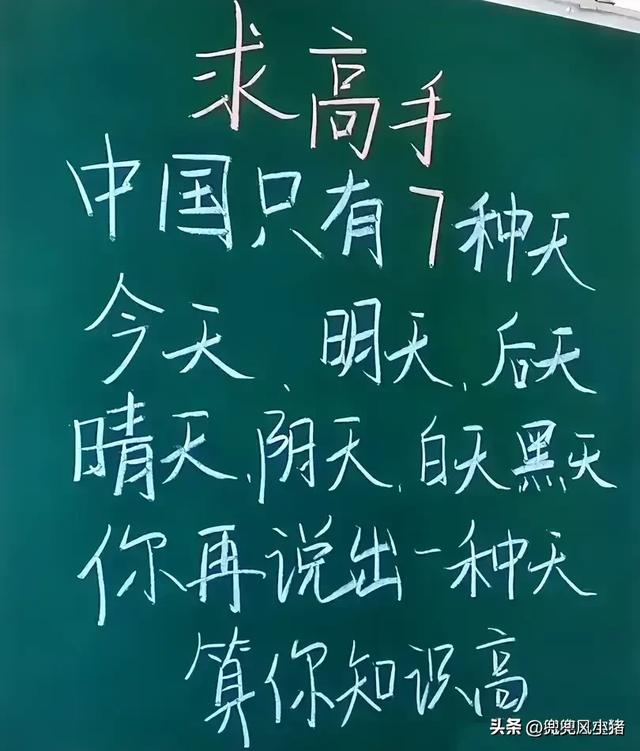 求高手
中国只有7种天
今天、明天、后天
晴天、阴天、白天黑天
你再说出一种天
算你知识高
头条 @兜兜风尘猪